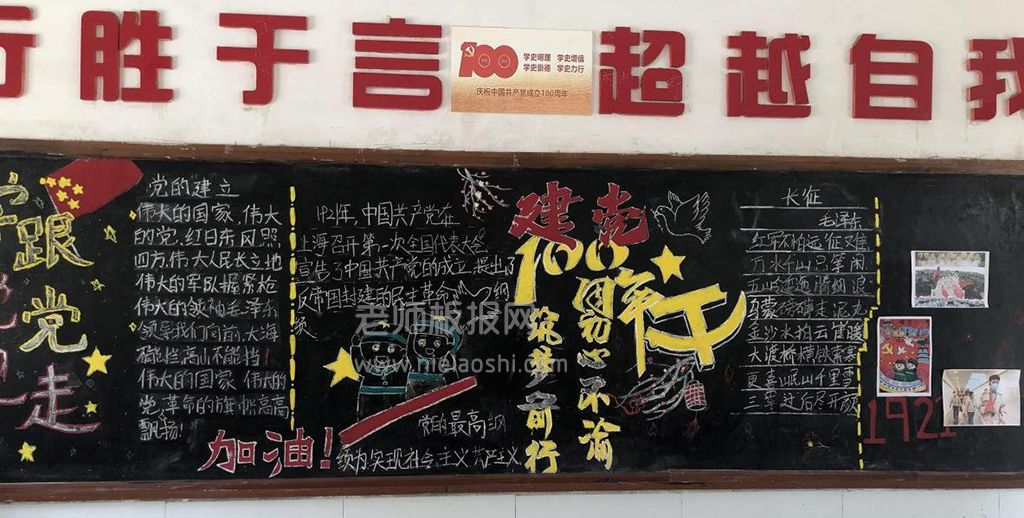 行胜于言
学史明理 学史增信
学史崇德 学史力行
庆祝中国共产党成立100周年
超越自我
跟
党
走
党的建立
伟大的国家、伟大
的党、红日东风照
四方,伟大人民长立地
伟大的军队握紧枪
伟大的领袖毛泽东
领导我们向前,大海
能挡高山不能挡!
伟大的国家伟大的
党、革命的旗帜高高
飘扬!
192年,中国共产党在
上海召开第一次全国代表大会
宣告了中国共产党的成立,提出了
反帝国封建的民主革命纲
领
党的最高纲
领为实现社会主义共产主义
加油!
建党
100周年
初心不渝
筑梦前行
长征
毛泽东
红军不怕远征难
万水千山只等闲
五岭逶迤腾细浪
乌蒙磅礴走泥丸
金沙水拍云崖暖
大渡桥横铁索寒
更喜岷山千里雪
三军过后尽开颜
1921
老师板报网
www.hielaoshi.com